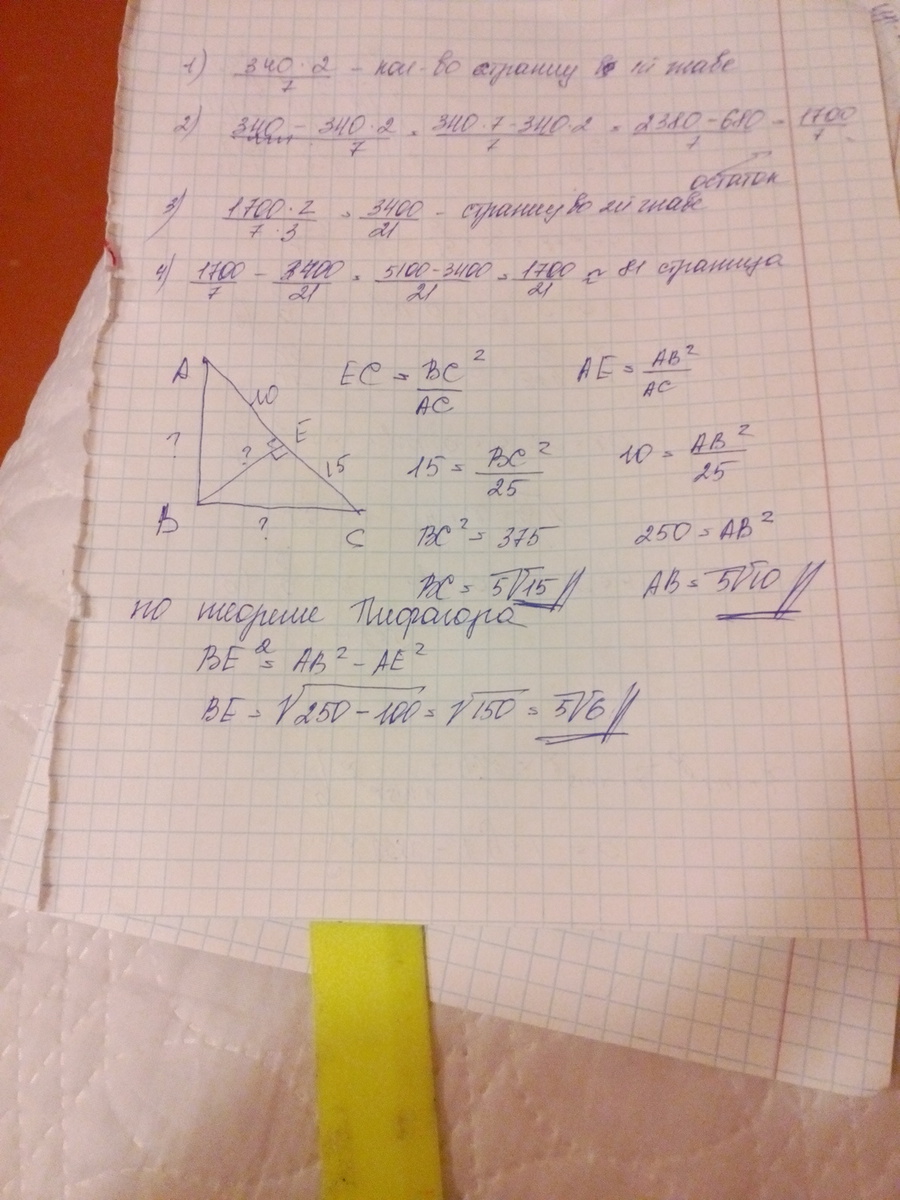 1) 340·2/7 – кол-во страниц в 1й главе
2) 340 – 340·2/7 = 340·7–340·2/7 = 2380–680/7 = 1700/7
остаток
3) 1700·2/7·3 = 3400/21 – страниц во 2й главе
4) 1700/7 – 3400/21 = 5100–3400/21 = 1700/21 ≈ 81 страница
A 10 E 15 C B ? ? ?
EC = BC²/AC AE = AB²/AC
15 = BC²/25 10 = AB²/25
BC² = 375 250 = AB²
BC = 5√15 AB = 5√10
по теореме Пифагора
BE² = AB² – AE²
BE = √250–100 = √150 = 5√6